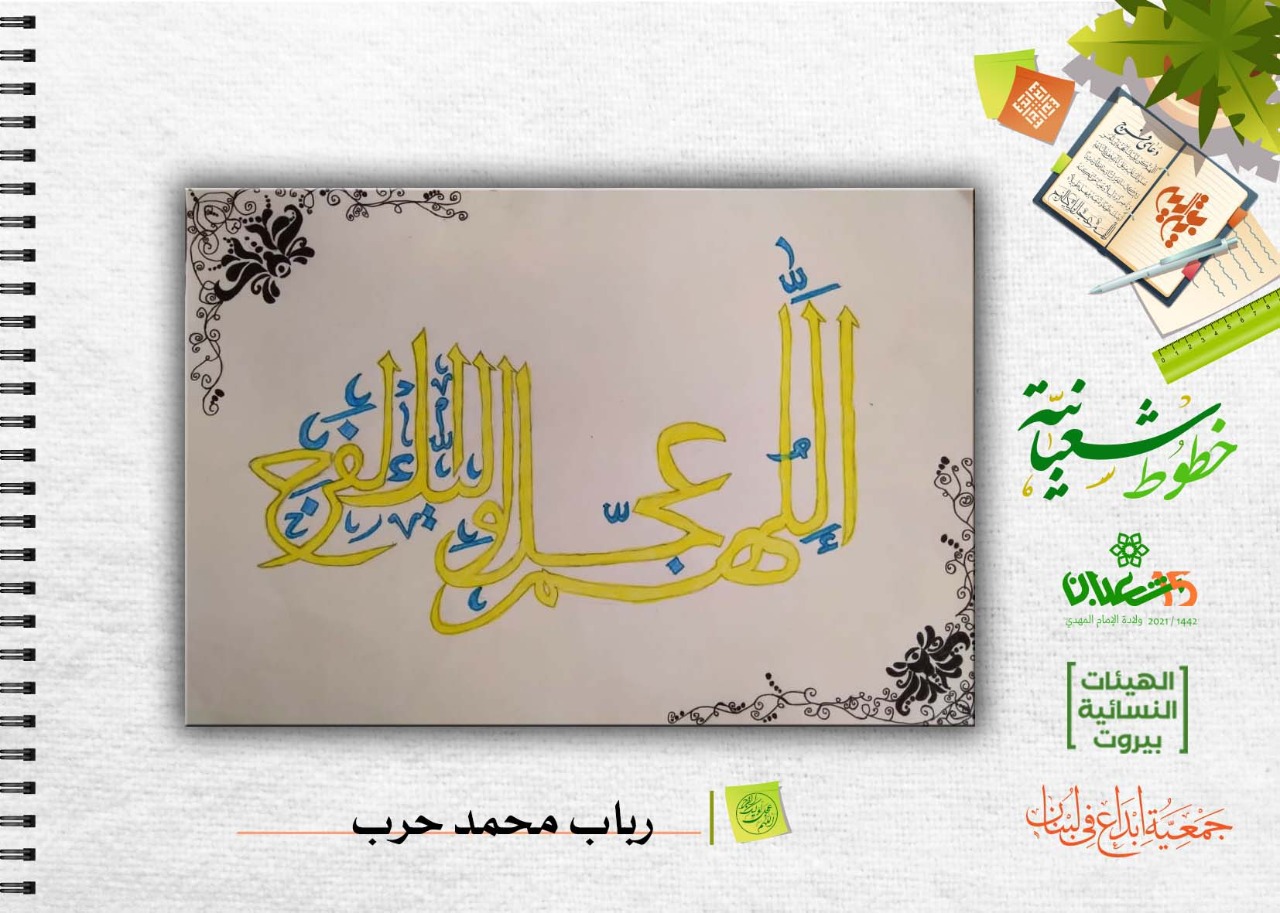 اللّٰهم عجّل لوليك الفرج
دعای فرج
خطوط شعبانية
15 شعبان
1442 / 2021 ولادة الإمام المهدي
الهيئات
النسائية
بيروت
جمعيّة إبداع في لبنان
رباب محمد حرب
0 1 2 3 4 5 6 7 8